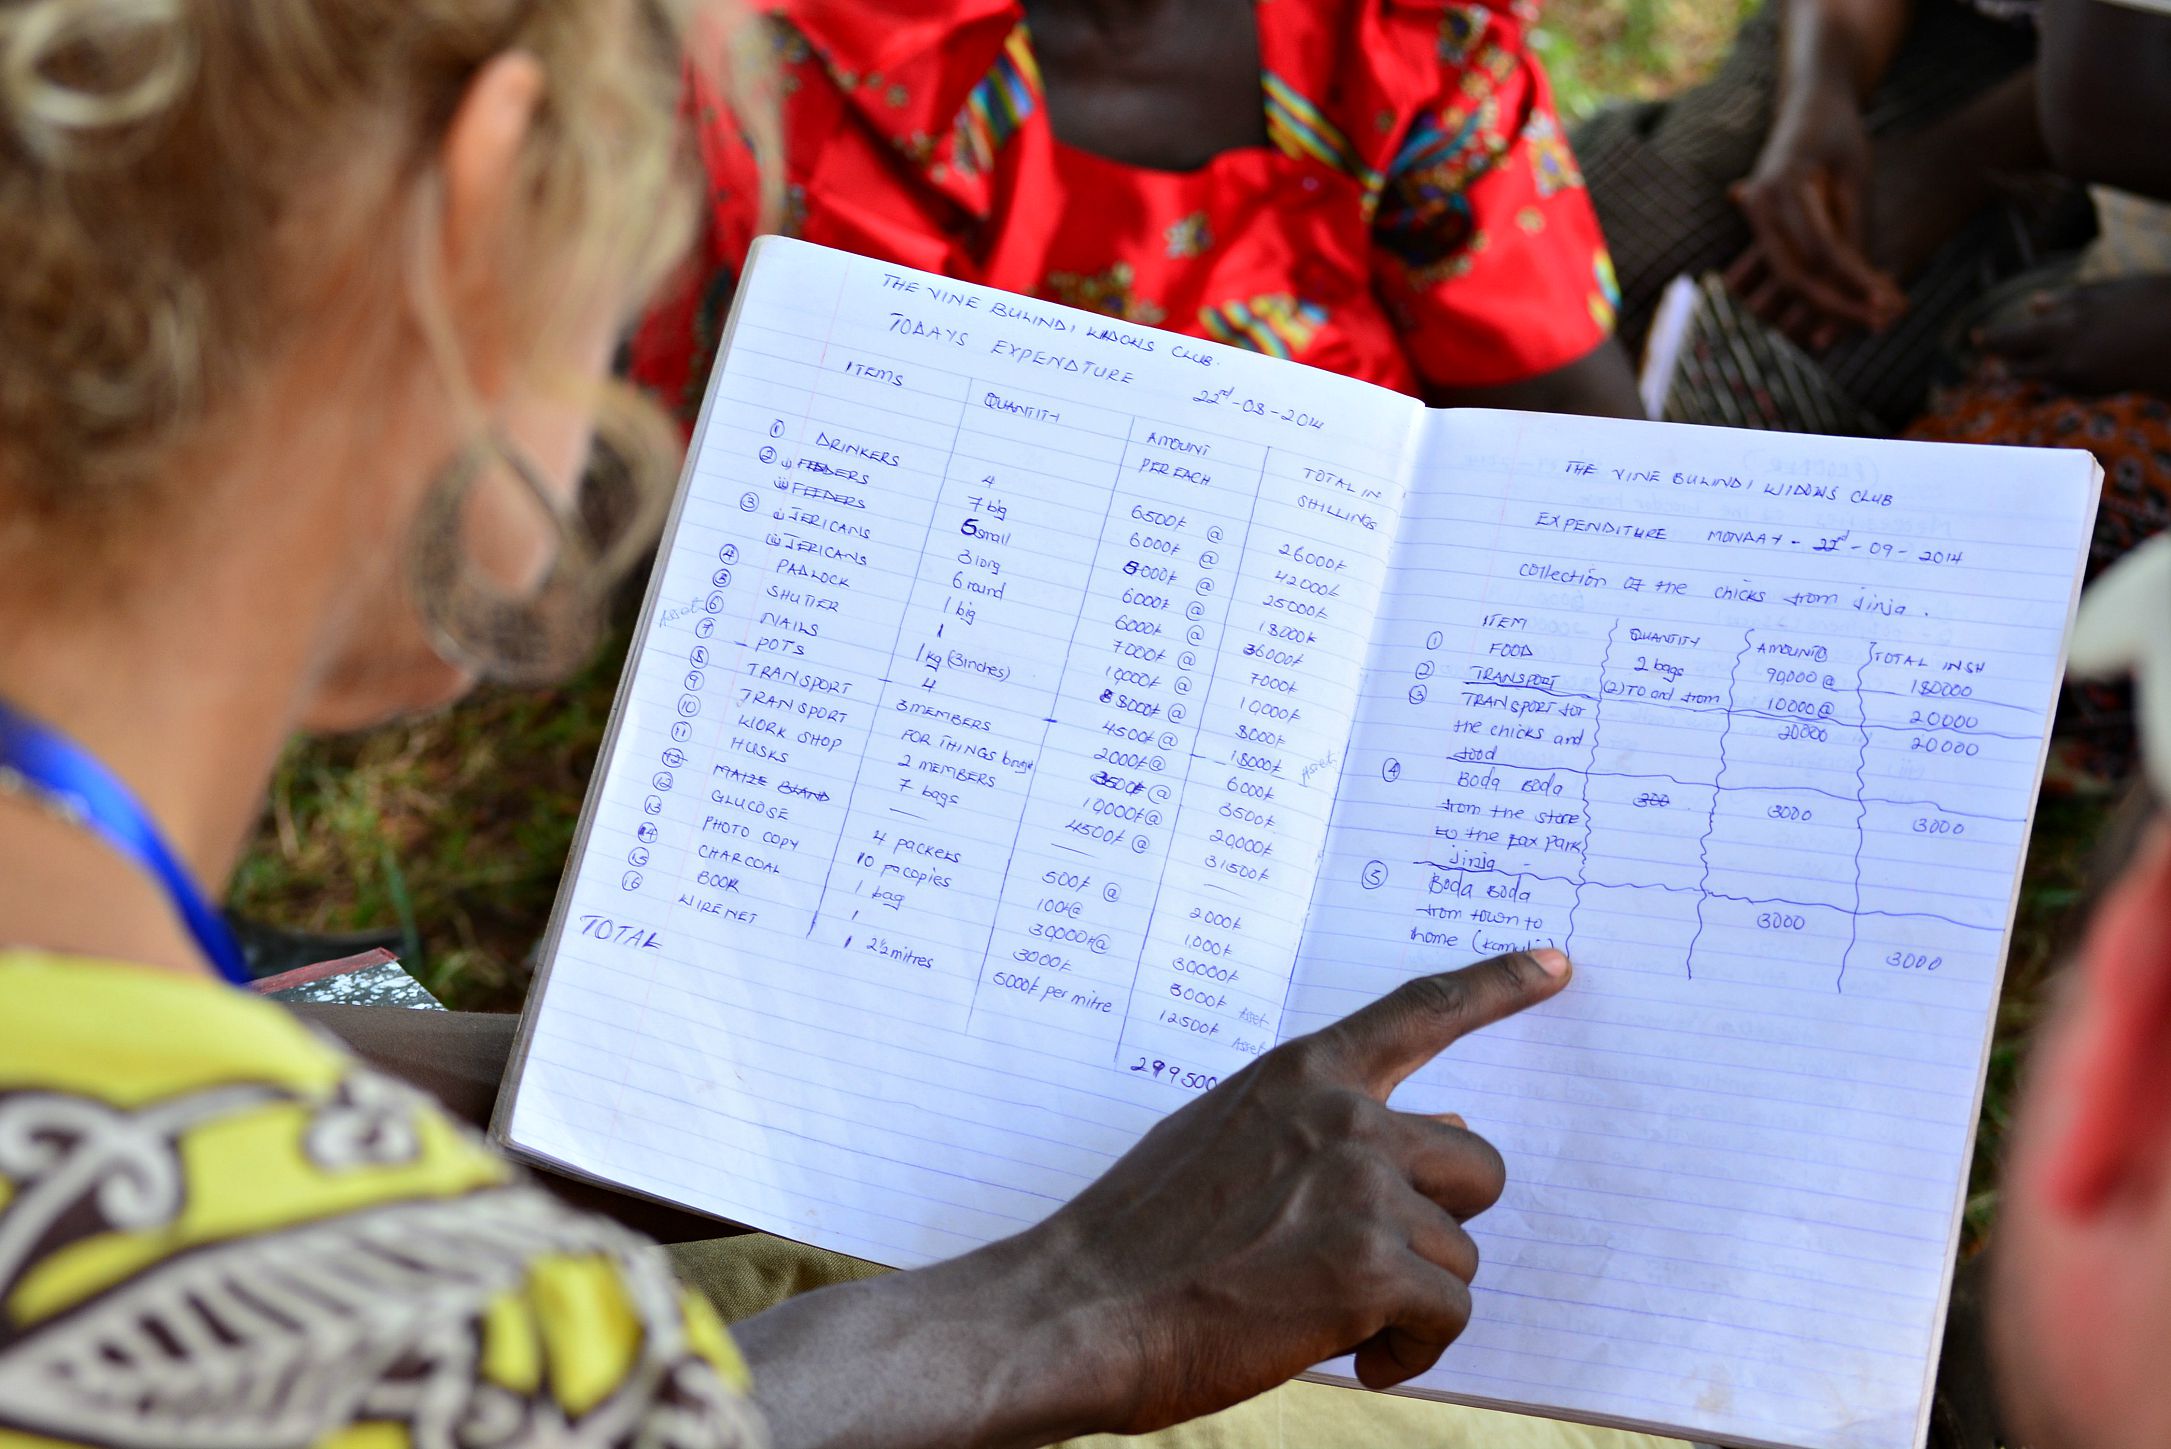 THE VINE BULINDI WIDOWS CLUB.
TODAYS EXPENDATURE 22nd-08-2014
ITEMS QUANTITY AMOUNT PER EACH TOTAL IN SHILLINGS
① DRINKERS 4 6500/= @ 26000/=
② i) FEEDERS 7 big 6000/= @ 42000/=
ii) FEEDERS 5 small 5000/= @ 25000/=
③ i) JERICANS 3 long 6000/= @ 18000/=
ii) JERICANS 6 round 6000/= @ 36000/=
④ PADLOCK 1 big 7000/= @ 7000/=
⑤ SHUTTER 1 10,000/= @ 10,000/=
Asset ⑥ NAILS 1 kg (3inches) 8000/= @ 8000/=
⑦ - POTS - 4 - 4500/= @ - 18000/= Asset
⑧ TRANSPORT 3 MEMBERS 2000/= @ 6000/=
⑨ TRANSPORT FOR THINGS bougt 3500/= @ 3500/=
⑩ WORK SHOP 2 MEMBERS 10000/= @ 20,000/=
⑪ HUSKS 7 bags 4500/= @ 31500/=
⑫ MAIZE BRAND — — —
⑫ GLUCOSE 4 packets 500/= @ 2000/=
⑬ PHOTO COPY 10 pacopies 100/= @ 1,000/=
⑭ CHARCOAL 1 bag 30,000/= @ 30000/=
⑮ BOOK 1 3000/= 3000/= Asset
⑯ WIRE NET 2½ mitres 5000/= per mitre 12500/= Asset
TOTAL 299500
THE VINE BULINDI WIDOWS CLUB
EXPENDITURE MONDAY - 22nd - 09 - 2014
collection of the chicks from Jinja.
ITEM QUANTITY AMOUNT@ TOTAL IN SH
① FOOD 2 bags 90,000 @ 180000
② TRANSPORT (2) TO and from 10000 @ 20000
③ TRANSPORT for 20000 20000
the chicks and
food
④ Boda Boda 300 3000 3000
from the store
to the tax park
Jinja -
⑤ Boda Boda 3000 3000
from town to
home